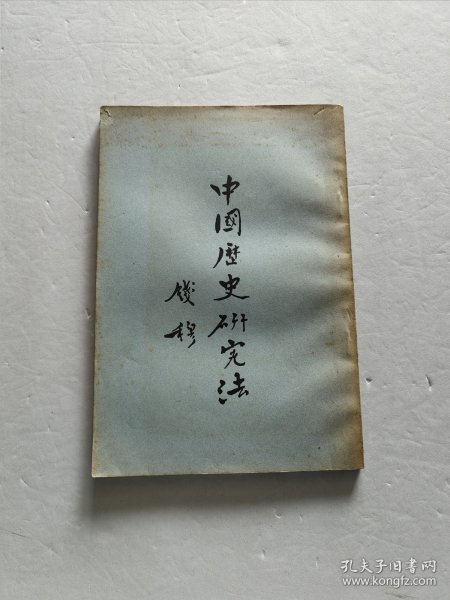 中國歷史研究法
錢穆
孔夫子旧书网
www.kongfz.com